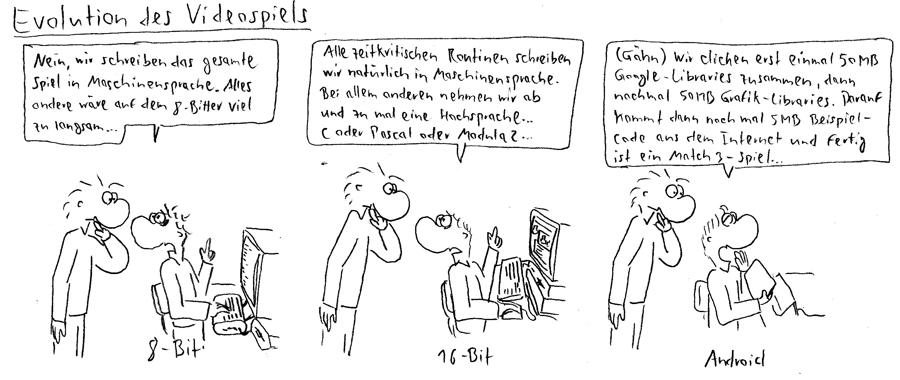 Evolution des Videospiels
Nein, wir schreiben das gesamte
Spiel in Maschinensprache. Alles
andere wäre auf dem 8-Bitter viel
zu langsam...
Alle zeitkritischen Routinen schreiben
wir natürlich in Maschinensprache.
Bei allem anderen nehmen wir ab
und zu mal eine Hochsprache...
C oder Pascal oder Modula 2...
(Gähn) Wir clicken erst einmal 50MB
Google-Libraries zusammen, dann
nochmal 50MB Grafik-Libraries. Darauf
kommt dann noch mal 5MB Beispiel-
code aus dem Internet und fertig
ist ein Match 3-Spiel...
8-Bit
16-Bit
Android